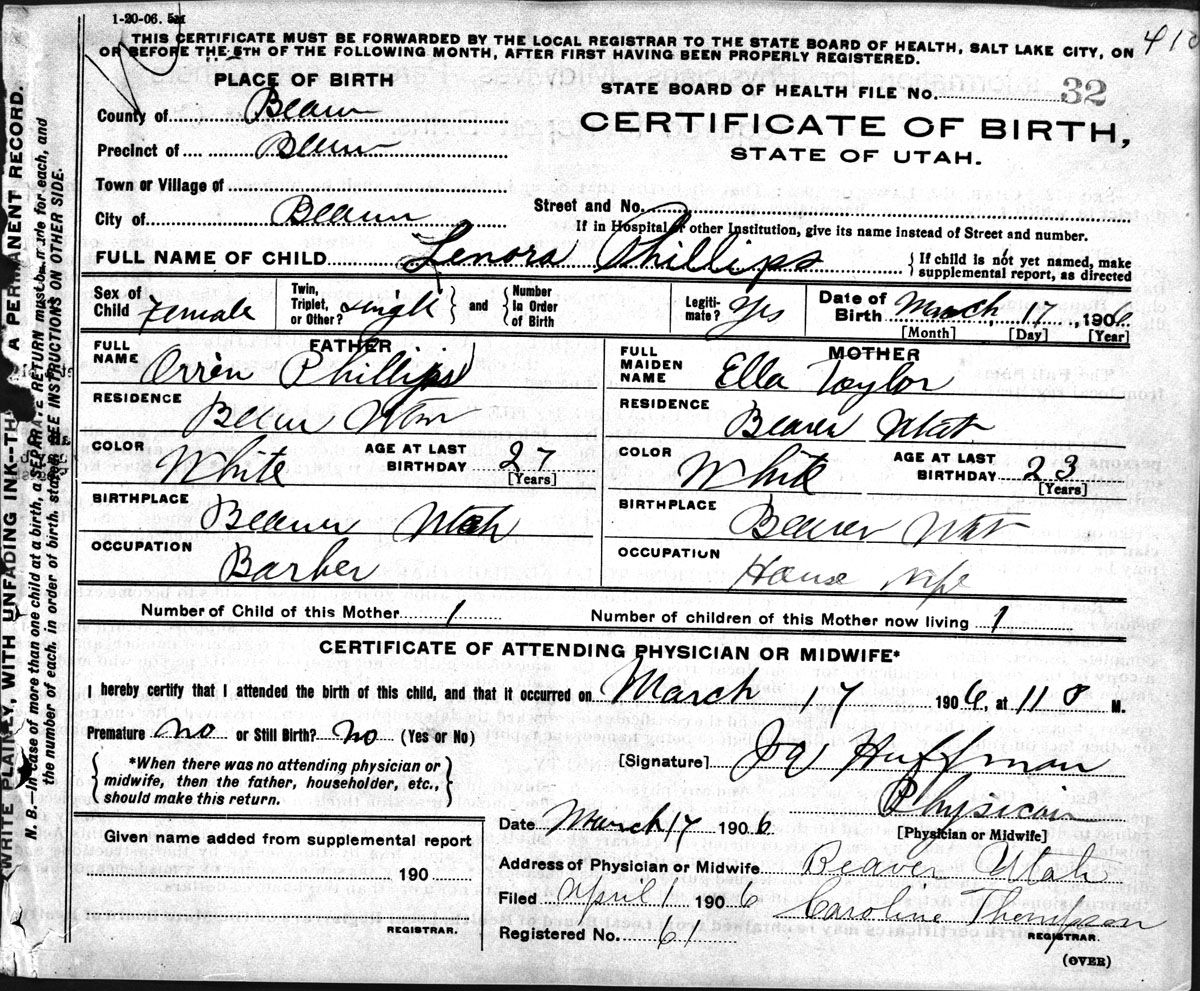 1-20-06. 5M
THIS CERTIFICATE MUST BE FORWARDED BY THE LOCAL REGISTRAR TO THE STATE BOARD OF HEALTH, SALT LAKE CITY, ON
OR BEFORE THE 5TH OF THE FOLLOWING MONTH, AFTER FIRST HAVING BEEN PROPERLY REGISTERED.
PLACE OF BIRTH
STATE BOARD OF HEALTH FILE No. 32
County of Beaver
CERTIFICATE OF BIRTH,
STATE OF UTAH.
Precinct of Beaver
Town or Village of
City of Beaver
Street and No.
If in Hospital or other Institution, give its name instead of Street and number.
FULL NAME OF CHILD Lenora Phillips
If child is not yet named, make
supplemental report, as directed
Sex of Child Female
Twin, Triplet, or Other? Single and Number In Order of Birth
Legitimate? Yes
Date of Birth March 17, 1906
[Month] [Day] [Year]
FATHER
FULL NAME Orrin Phillips
RESIDENCE Beaver Utah
COLOR White AGE AT LAST BIRTHDAY 27
[Years]
BIRTHPLACE Beaver Utah
OCCUPATION Barber
MOTHER
FULL MAIDEN NAME Ella Taylor
RESIDENCE Beaver Utah
COLOR White AGE AT LAST BIRTHDAY 23
[Years]
BIRTHPLACE Beaver Utah
OCCUPATION House Wife
Number of Child of this Mother 1 Number of children of this Mother now living 1
CERTIFICATE OF ATTENDING PHYSICIAN OR MIDWIFE*
I hereby certify that I attended the birth of this child, and that it occurred on March 17 1906, at 11 8 M.
Premature no or Still Birth? no (Yes or No)
*When there was no attending physician or
midwife, then the father, householder, etc.,
should make this return.
[Signature] Huffman
Physician
[Physician or Midwife]
Given name added from supplemental report
190
REGISTRAR.
Date March 17 1906
Address of Physician or Midwife Beaver Utah
Filed April 1 1906 Caroline Thompson
REGISTRAR.
Registered No. 61
(OVER)
WRITE PLAINLY, WITH UNFADING INK—TH A PERMANENT RECORD.
N. B.—In case of more than one child at a birth, a SEPARATE RETURN must be made for each, and
the number of each, in order of birth, stated. SEE INSTRUCTIONS ON OTHER SIDE.